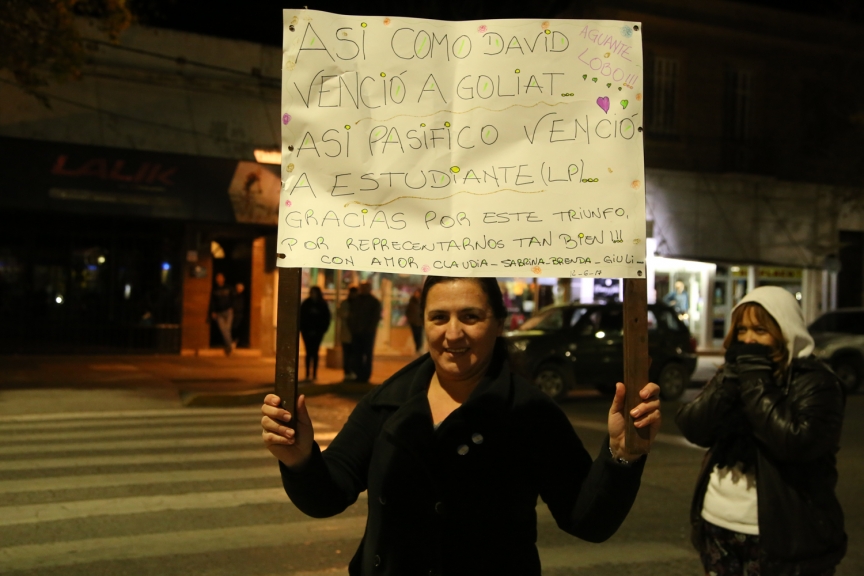 ASI COMO DAVID
VENCIÓ A GOLIAT...
ASI PASIFICO VENCIÓ
A ESTUDIANTE (LP)...
GRACIAS POR ESTE TRIUNFO,
POR REPRECENTARNOS TAN BIEN!!!
CON AMOR CLAUDIA-SABRINA-BRENDA-GIULI-
14-6-17
AGUANTE
LOBO!!!
LALIK